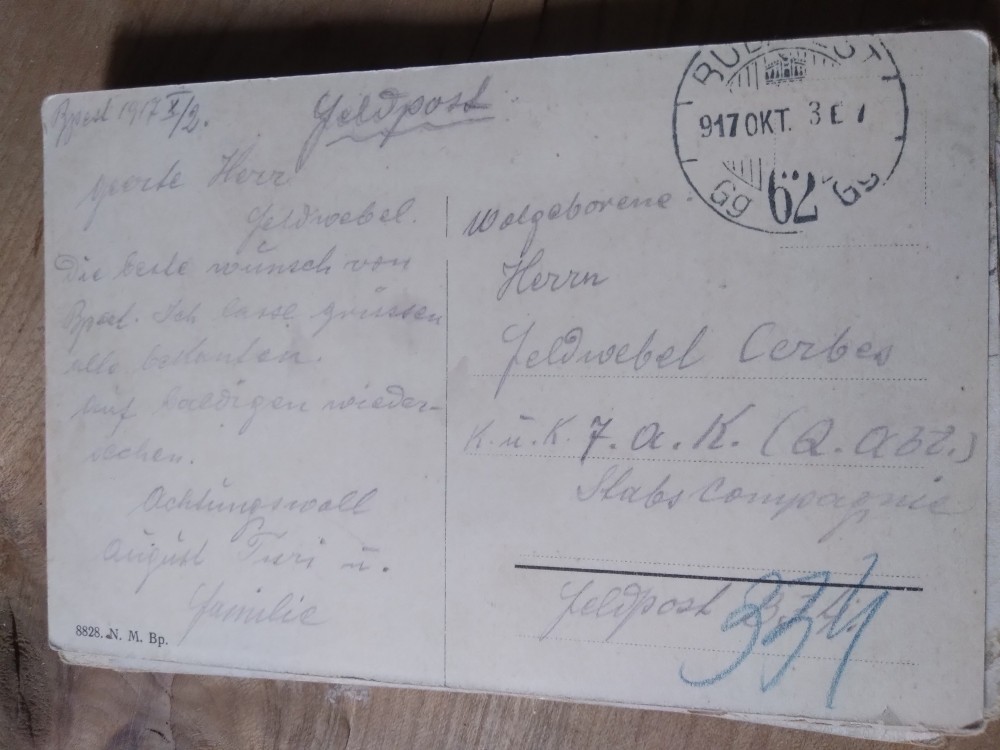 Bpest 1917 X/2.
Feldpost
geerte Herr
Feldwebel.
Die beste wünsch von
Bpest. Ich lasse grüssen
alle bekanten.
Auf baldigen wieder-
sechen.
Achtungswoll
August Turi u.
Familie
8828. N. M. Bp.
BUDAPEST
917 OKT. 3 E 7
62
Wolgeborene
Herrn
Feldwebel Cerbes
K. u. K. 7. A. K. (Q. Abt.)
Stabs Compagnie
Feldpost
331